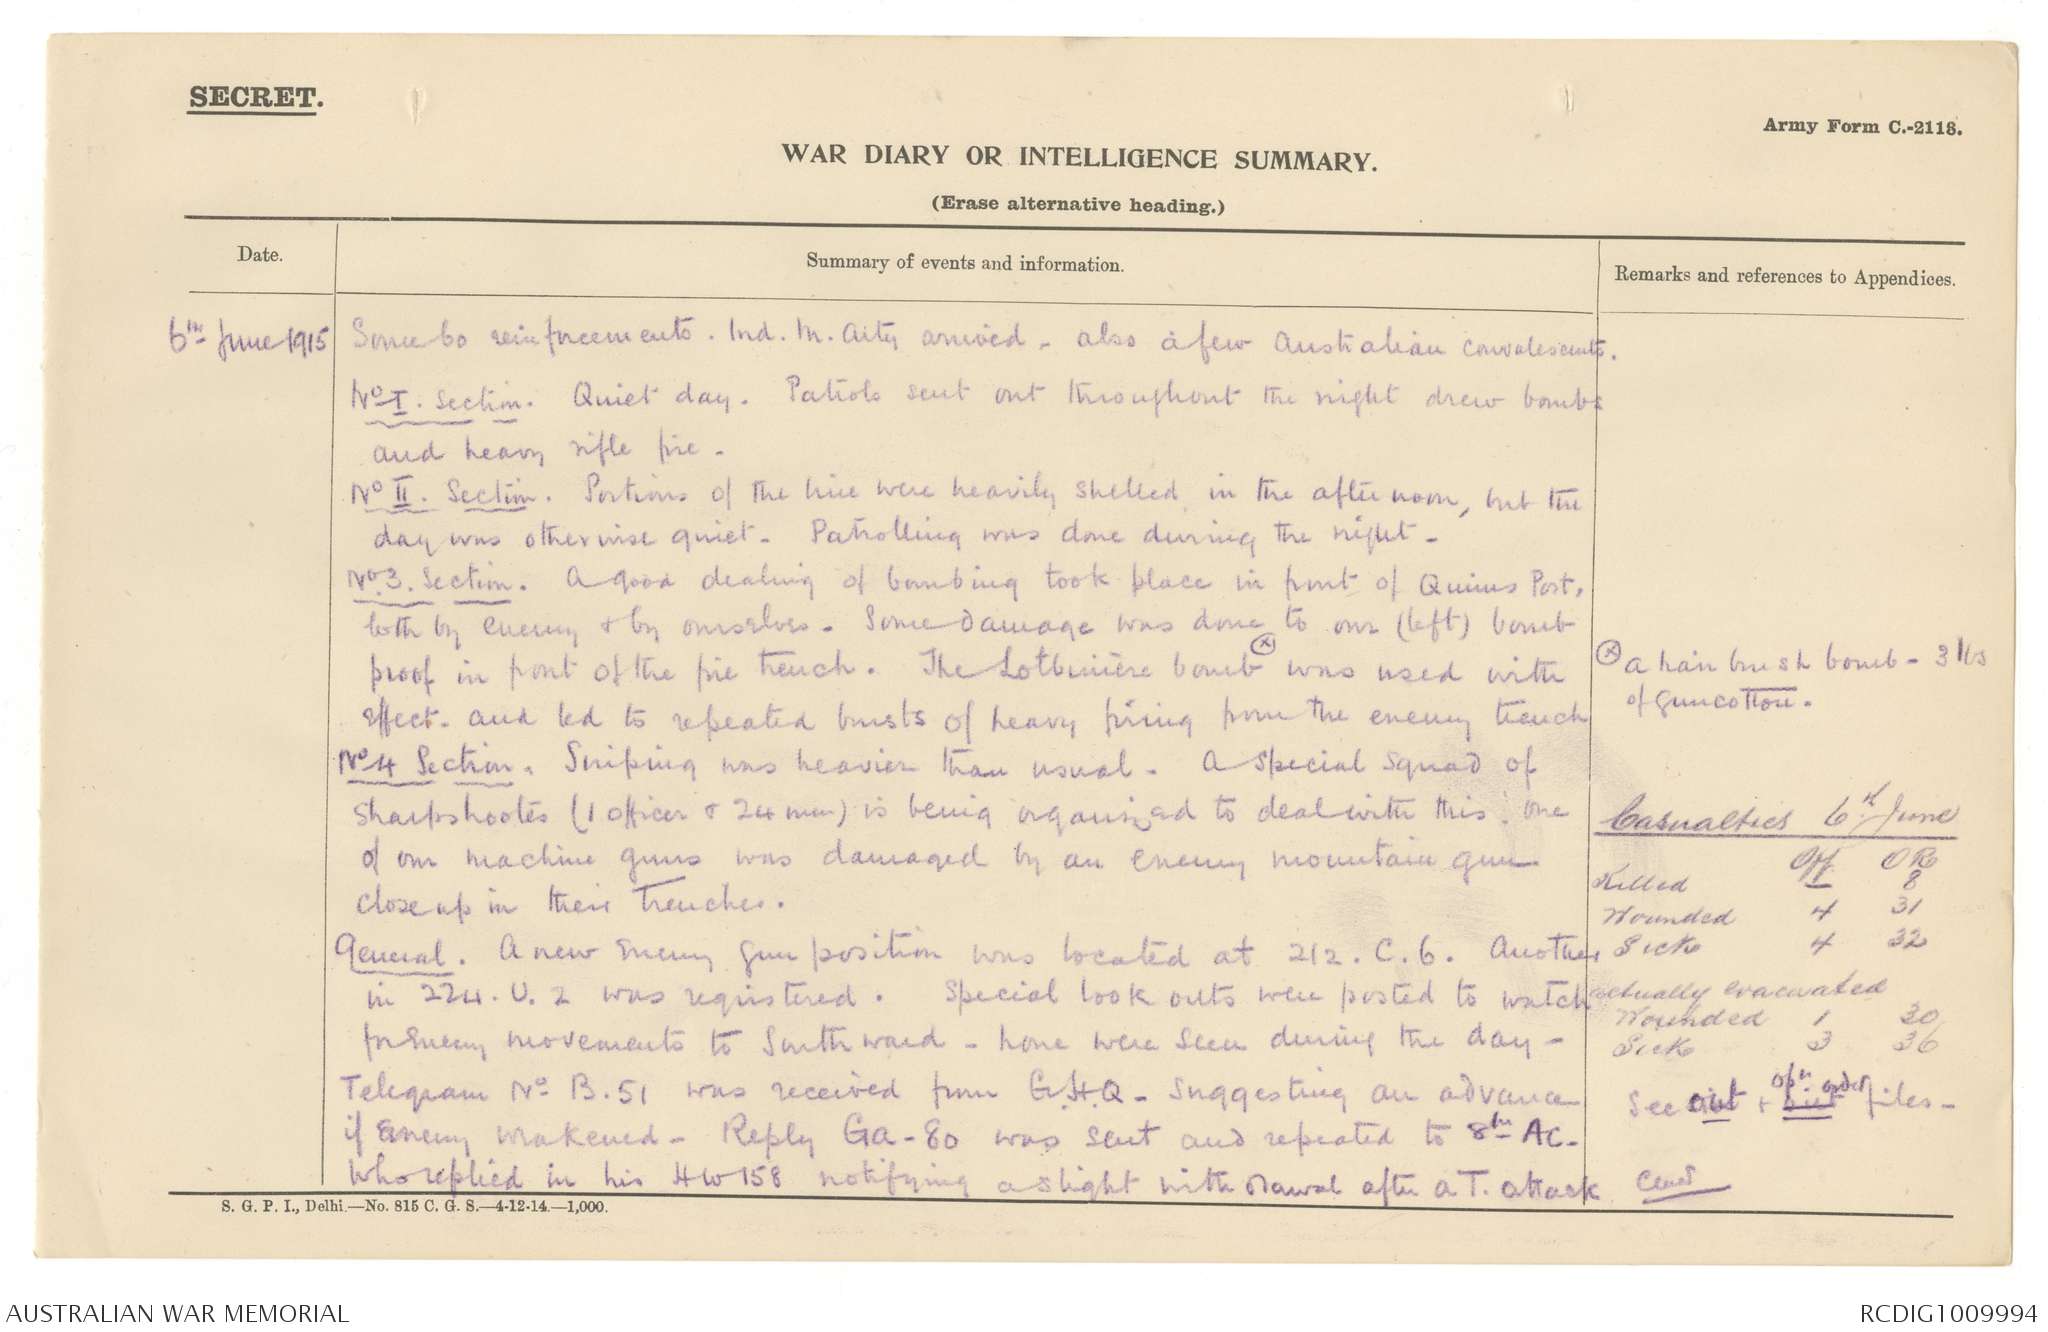 SECRET.
Army Form C.-2118.
WAR DIARY OR INTELLIGENCE SUMMARY.
(Erase alternative heading.)
Date.
Summary of events and information.
Remarks and references to Appendices.
6th June 1915
Some 60 reinforcements. Ind. M. Arty arrived - also a few Australian convalescents.
No I. Section. Quiet day. Patrols sent out throughout the night drew bombs
and heavy rifle fire -
No II. Section. Portions of the line were heavily shelled in the afternoon, but the
day was otherwise quiet - Patrolling was done during the night -
No. 3. Section. A good dealing of bombing took place in front of Quinns Post,
both by enemy & by ourselves. Some damage was done to our (left) bomb
proof in front of the fire trench. The Lotbiniere bomb (x) was used with
effect - and led to repeated bursts of heavy firing from the enemy trench
No 4 Section. Sniping was heavier than usual - A special squad of
sharpshooters (1 officer & 24 men) is being organized to deal with this. One
of our machine guns was damaged by an enemy mountain gun
close up in their trenches.
General. A new enemy gun position was located at 212. C. 6. Another
in 224. U. 2 was registered. Special look outs were posted to watch
for enemy movements to Southward - none were seen during the day -
Telegram No B. 51 was received from G.H.Q - suggesting an advance
if enemy weakened - Reply Ga - 80 was sent and repeated to 8th AC -
who replied in his HW158 notifying a slight withdrawal after a T. attack
(x) A hair brush bomb - 3 lbs
of guncotton.
Casualties 6th June
Off OR
Killed — 8
Wounded 4 31
Sick 4 32
Actually evacuated
Wounded 1 30
Sick 3 36
See out + opn order files -
S. G. P. I., Delhi.—No. 815 C. G. S.—4-12-14.—1,000.
AUSTRALIAN WAR MEMORIAL
RCDIG1009994